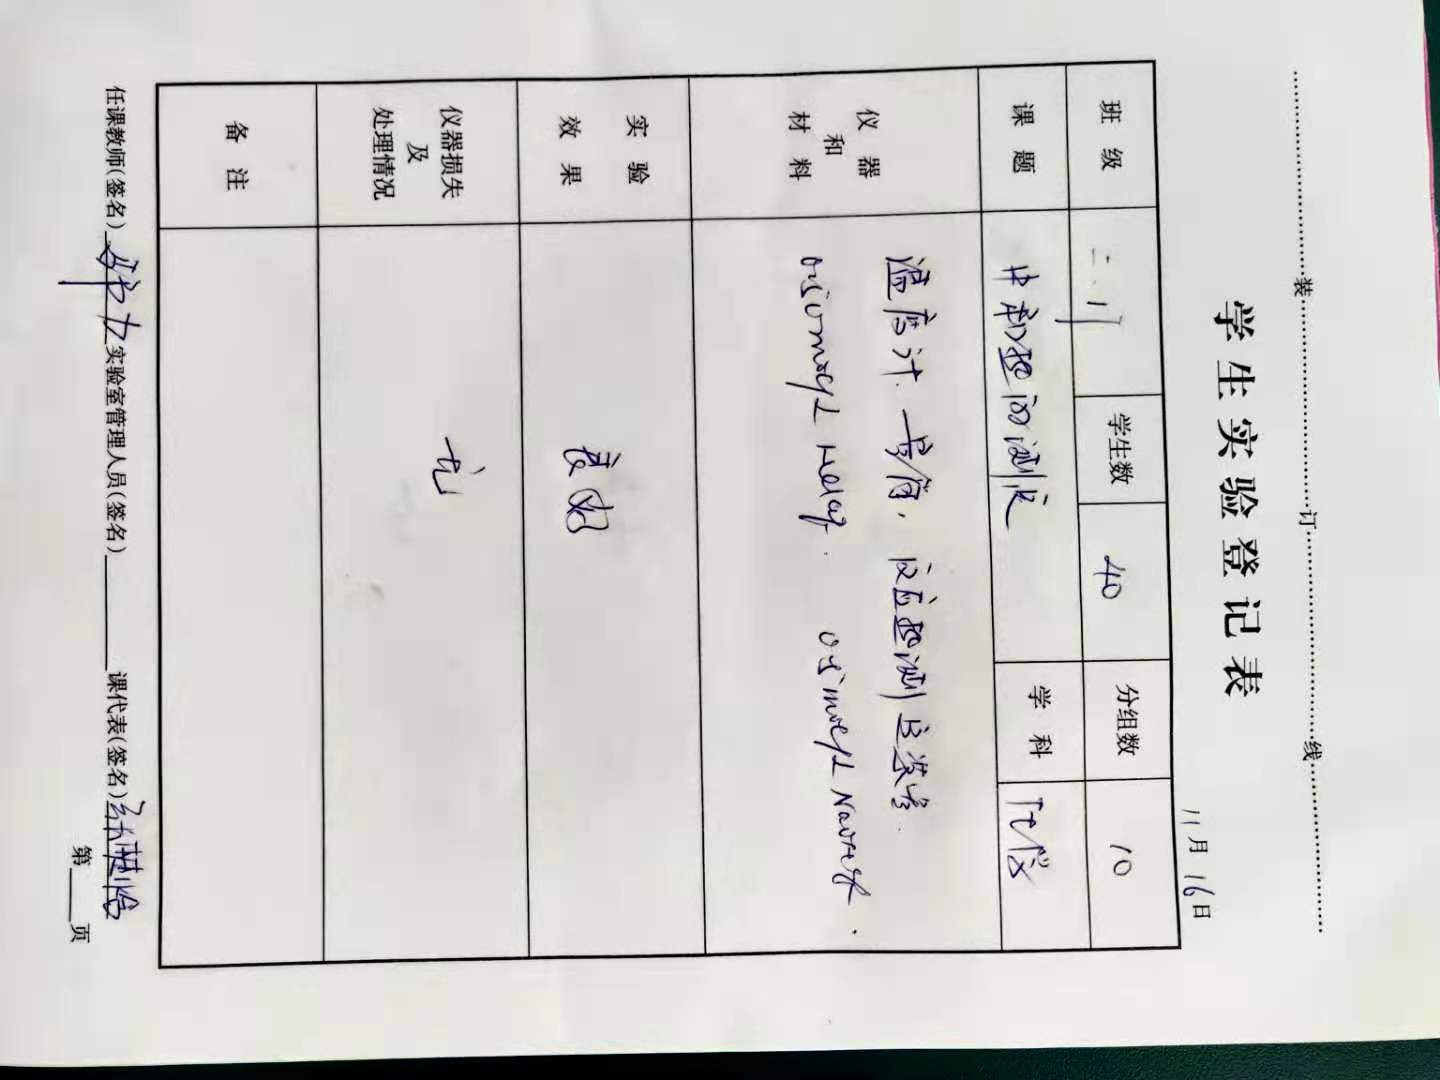 装 订 线
学生实验登记表
11月16日
班级 二.1 学生数 40 分组数 10
课题 中和热的测定 学科 化学
仪器和材料 温度计. 量筒, 反应热测定装置.
0.50mol/L HCl液. 0.55mol/L NaOH液.
实验效果 良好
仪器损失及处理情况 无
备注
任课教师(签名) 实验室管理人员(签名) 课代表(签名)
第 页